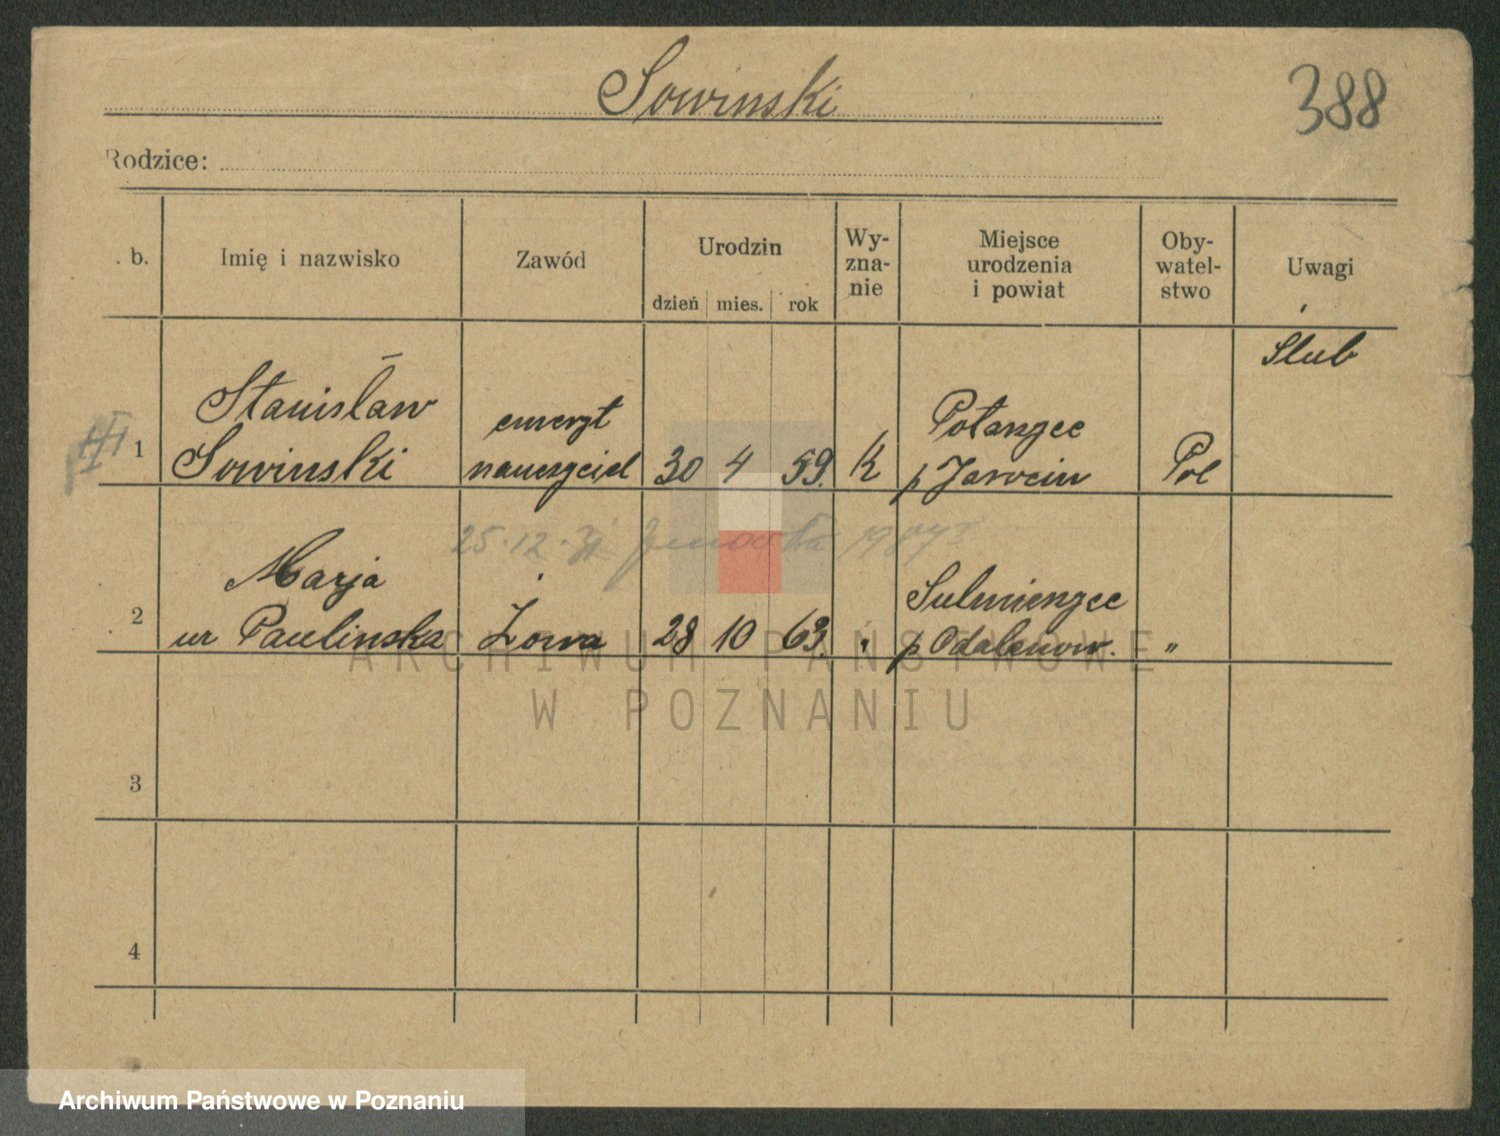 Sowinski
388
Rodzice:
. b.
Imię i nazwisko
Zawód
Urodzin
dzień mies. rok
Wy-
zna-
nie
Miejsce
urodzenia
i powiat
Oby-
watel-
stwo
Uwagi
Slub
1
Stanisław
Sowinski
emeryt
nauczyciel
30 4 59.
K
Potarzyce
p Jarocin
Pol
25.12.31
2
Marja
ur Paulinska
Żona
28 10 63.
"
Sulmierzyce
p Odalanow.
"
3
4
ARCHIWUM PAŃSTWOWE
W POZNANIU
Archiwum Państwowe w Poznaniu